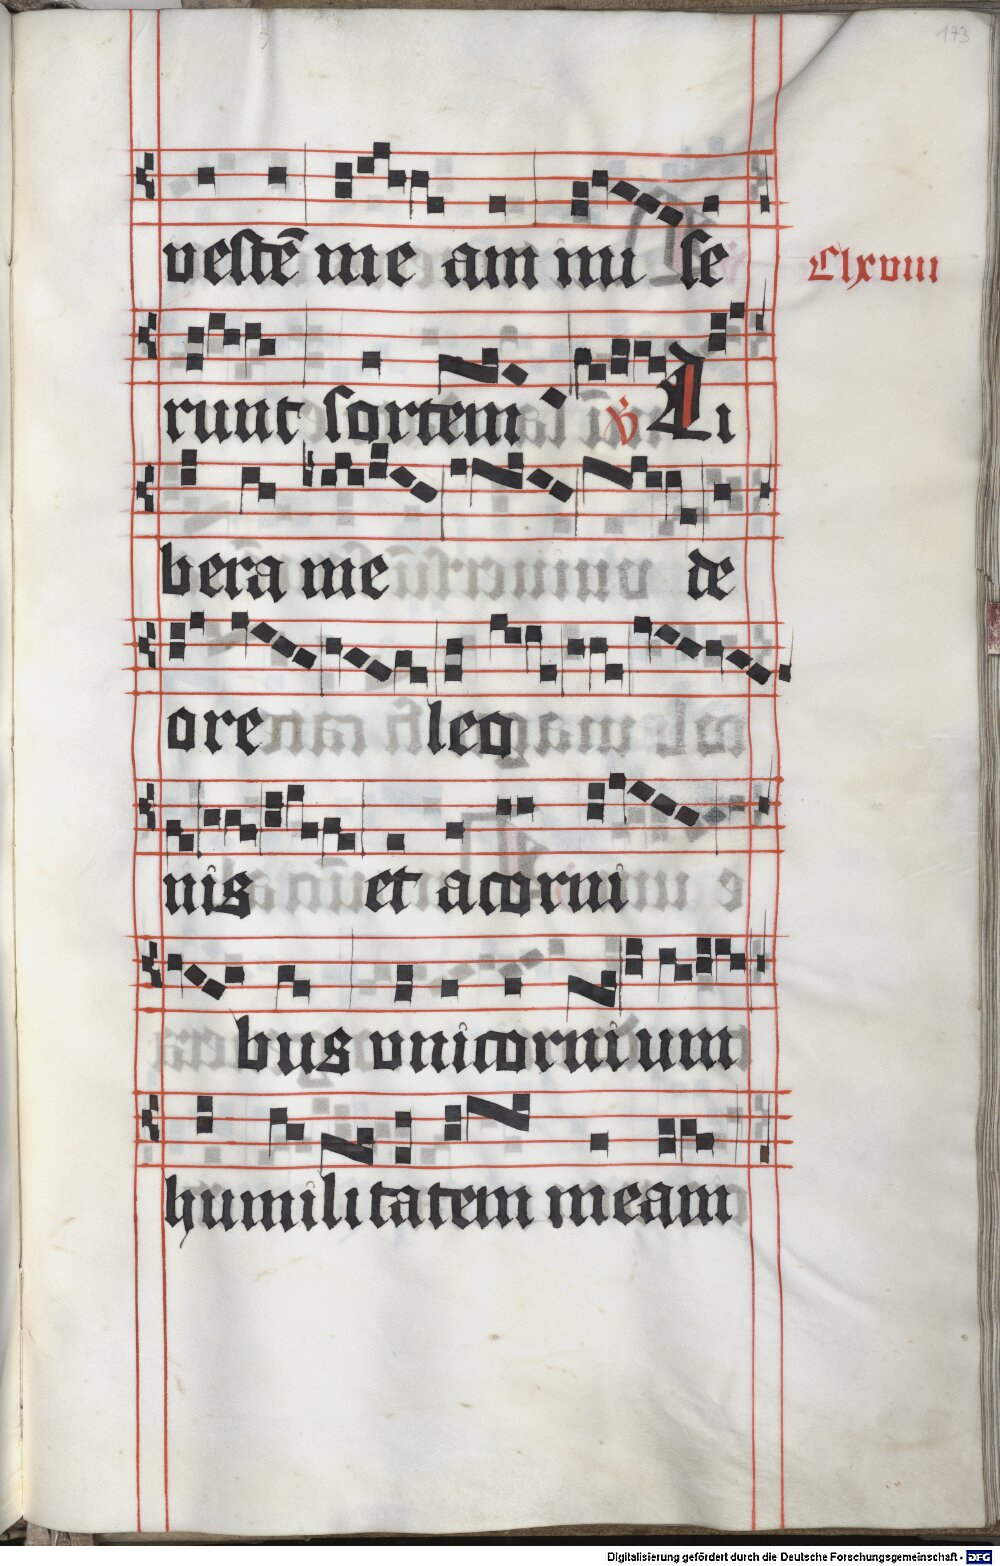 173
vestē me am mi se
Clxviii
runt sortem ℣ Li
bera me de
ore leo
nis et a corni
bus vnicornium
humilitatem meam
Digitalisierung gefördert durch die Deutsche Forschungsgemeinschaft - DFG